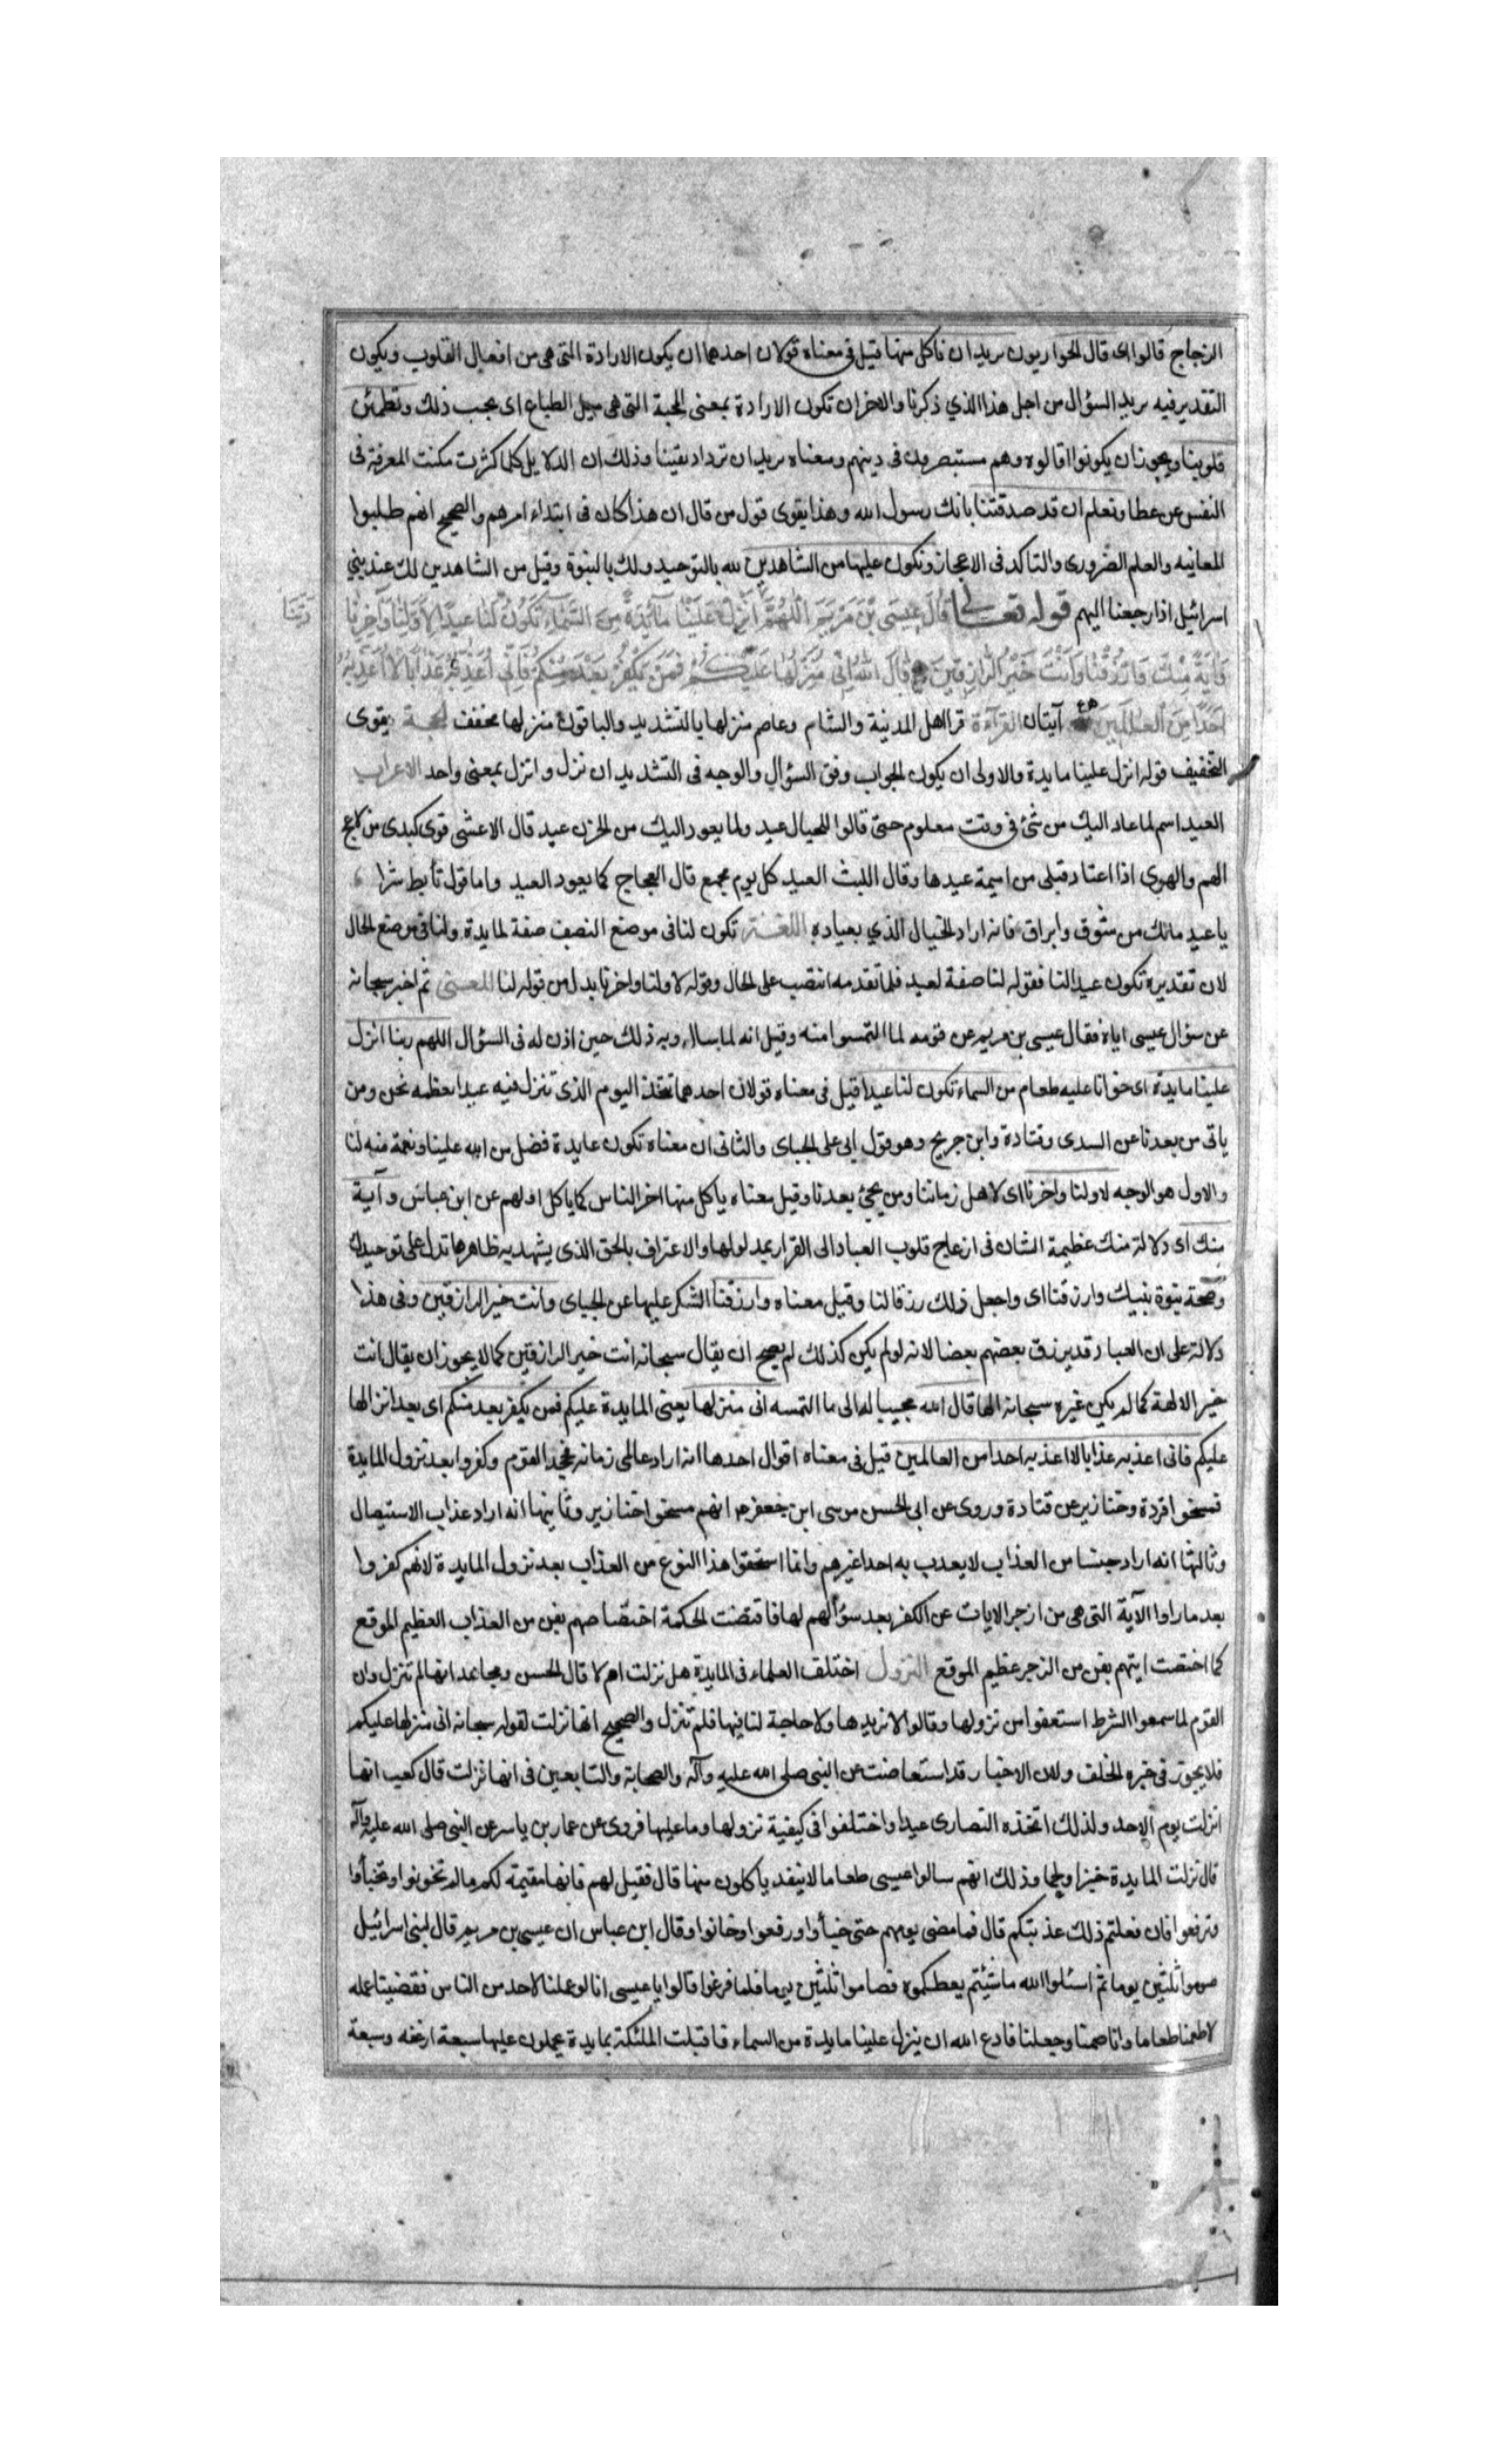 الزجاج قالوا اى قال الحواريون نريد ان ناكل منها قيل فى معناه قولان احدهما ان يكون الارادة التى هى من افعال القلوب ويكون
التقدير فيه نريد السؤال من اجل هذا الذي ذكرنا والاخر ان تكون الارادة بمعنى المحبة التى هى ميل الطباع اى نحب ذلك وتطمئن
قلوبنا ويجوز ان يكونوا قالوه وهم مستبصرون فى دينهم ومعناه نريد ان نزداد يقينا وذلك ان الدلايل كلما كثرت مكنت المعرفة فى
النفس عن عطا ونعلم ان قد صدقتنا بانك رسول الله وهذا يقوى قول من قال ان هذا كان فى ابتداء امرهم والصحيح انهم طلبوا
المعاينه والعلم الضرورى والتاكد فى الاعجاز ونكون عليها من الشاهدين لله بالتوحيد ولك بالنبوة وقيل من الشاهدين لك عند بنى
اسرائيل اذا رجعنا اليهم قوله تعالى قَالَ عِيسَى بْنُ مَرْيَمَ اَللّهُمَّ اَنْزِلْ عَلَيْنَا مَآئِدَةً مِنَ السَّمَاءِ تَكُونُ لَنَا عِيدًا لِاَوَّلِنَا وَآخِرِنَا
رَبَّنَا
وَآيَةً مِنْكَ وَارْزُقْنَا وَاَنْتَ خَيْرُ الرَّازِقِينَ قَالَ اللهُ اِنِّى مُنَزِّلُهَا عَلَيْكُمْ فَمَنْ يَكْفُرْ بَعْدُ مِنْكُمْ فَاِنِّى اُعَذِّبُهُ عَذَابًا لَا اُعَذِّبُهُ
اَحَدًا مِنَ الْعَالَمِينَ آيتان القرآءة قرا اهل المدينة والشام وعاصم منزلها بالتشديد والباقون منزلها مخفف الحجة يقوى
التخفيف قوله انزل علينا مايدة والاولى ان يكون الجواب وفق السؤال والوجه فى التشديد ان نزل وانزل بمعنى واحد الاعراب
العيد اسم لما عاد اليك من شئ فى وقت معلوم حتى قالوا للخيال عيد ولما يعود اليك من الحزن عيد قال الاعشى فوى كبدى من لاعج
الهم والهوى اذا اعتاد قبلى من اميمة عيدها وقال الليث العيد كل يوم مجمع قال العجاج كما يعود العيد واما قول تأبط شرا
يا عيد مالك من شوق وابراق فانه اراد الخيال الذي يعياده اللغة تكون لنا فى موضع النصب صفة لمايدة ولنا فى موضع الحال
لان تقديره تكون عيدا لنا فقوله لنا صفة لعيد فلما تقدمه انتصب على الحال وقوله لاولنا واخرنا بدل من قوله لنا المعنى ثم اخبر سبحانه
عن سؤال عيسى اياه فقال عيسى بن مريم عن قومه لما التمسوا منه وقيل انه لما سال ربه ذلك حين اذن له فى السؤال اللهم ربنا انزل
علينا مايدة اى خوانا عليه طعام من السماء تكون لنا عيدا قيل فى معناه قولان احدهما نتخذ اليوم الذى تنزل فيه عيدا نعظمه نحن ومن
ياتى من بعدنا عن السدى وقتادة وابن جريج وهو قول ابى على الجباى والثانى ان معناه تكون عايدة فضل من الله علينا ونعمة منه لنا
والاول هو الوجه لاولنا واخرنا اى لاهل زماننا ومن يجئ بعدنا وقيل معناه ياكل منها اخر الناس كما ياكل اولهم عن ابن عباس وآية
منك اى دلالة منك عظيمة الشان فى ازعاج قلوب العباد الى القرار بمدلولها والاعتراف بالحق الذى يشهد به ظاهرها تدل على توحيدك
وصحة نبوة نبيك وارزقنا اى واجعل ذلك رزقا لنا وقيل معناه وارزقنا الشكر عليها عن الجباى وانت خير الرازقين وفى هذا
دلالة على ان العباد قد يرزق بعضهم بعضا لانه لو لم يكن كذلك لم يصح ان يقال سبحانه انت خير الرازقين كما لا يجوز ان يقال انت
خير الالهة كما لم يكن غيره سبحانه الها قال الله مجيبا له الى ما التمسه انى منزلها يعنى المايدة عليكم فمن يكفر بعد منكم اى بعد انزالها
عليكم فانى اعذبه عذابا لا اعذبه احدا من العالمين قيل فى معناه اقوال احدها انه اراد عالمى زمانه فجحد القوم وكفروا بعد نزول المايدة
فمسخوا قردة وخنازير عن قتادة وروى عن ابى الحسن موسى ابن جعفر انهم مسخوا خنازير وثانيها انه اراد عذاب الاستيصال
وثالثها انه اراد جنسا من العذاب لا يعذب به احدا غيرهم وانما استحقوا هذا النوع من العذاب بعد نزول المايدة لانهم كفروا
بعد ما راوا الآية التى هى من ازجر الايات عن الكفر بعد سؤالهم لها فاقتضت الحكمة اختصاصهم بفن من العذاب العظيم الموقع
كما اختصت ايتهم بفن من الزجر عظيم الموقع النزول اختلف العلماء فى المايدة هل نزلت ام لا قال الحسن ومجاهد انها لم تنزل وان
القوم لما سمعوا الشرط استعفوا من نزولها وقالوا لا نريدها ولا حاجة لنا فيها فلم تنزل والصحيح انها نزلت لقوله سبحانه انى منزلها عليكم
فلا يجوز فى خبره الخلف ولان الاخبار قد استفاضت عن النبى صلى الله عليه وآله والصحابة والتابعين فى انها نزلت قال كعب انها
انزلت يوم الاحد ولذلك اتخذه النصارى عيدا واختلفوا فى كيفية نزولها وما عليها فروى عن عمار بن ياسر عن النبى صلى الله عليه وآله
قال نزلت المايدة خبزا ولحما وذلك انهم سالوا عيسى طعاما لا ينفد ياكلون منها قال فقيل لهم فانها مقيمة لكم ما لم تخونوا وتخبأوا
وترفعوا فان فعلتم ذلك عذبتكم قال فما مضى يومهم حتى خبأوا ورفعوا وخانوا وقال ابن عباس ان عيسى بن مريم قال لبنى اسرائيل
صوموا ثلثين يوما ثم اسئلوا الله ما شئتم يعطكموه فصاموا ثلثين يوما فلما فرغوا قالوا يا عيسى انا لو عملنا لاحد من الناس فقضينا عمله
لاطعمنا طعاما وانا صمنا وجعلنا فادع الله ان ينزل علينا مايدة من السماء فاقبلت الملئكة بمايدة يحملون عليها سبعة ارغفه وسبعة